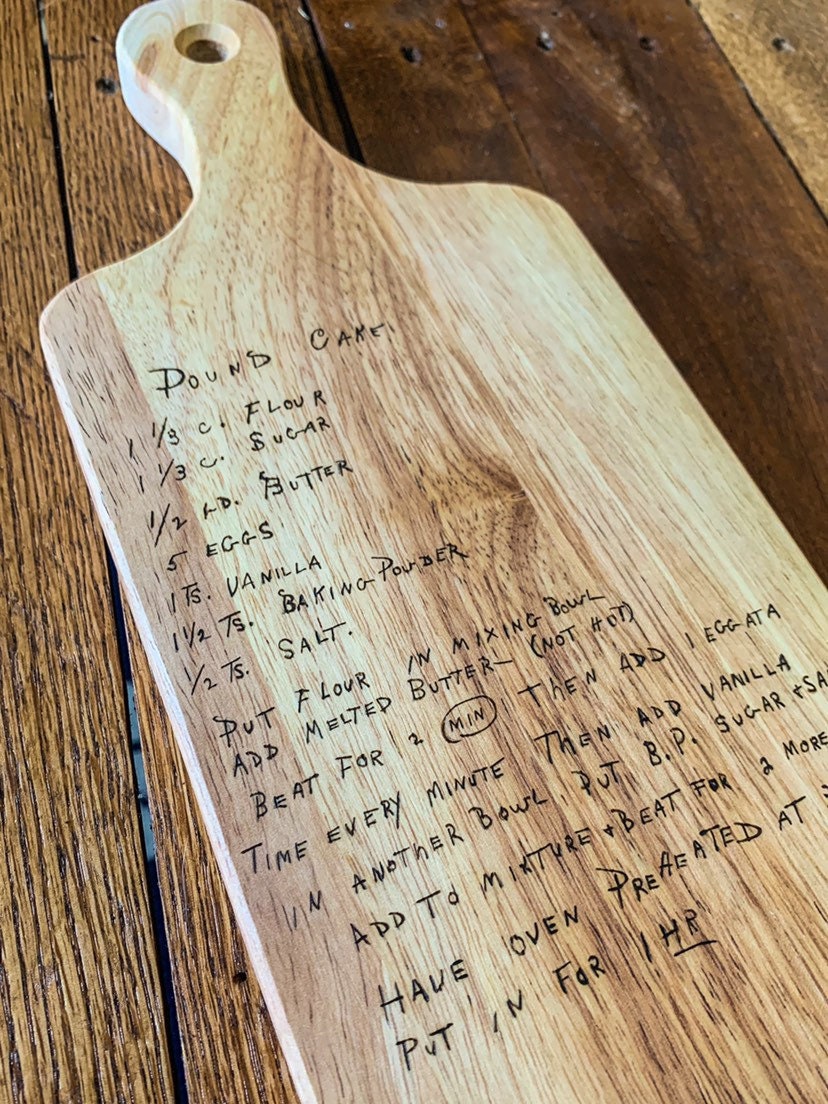 POUND CAKE
1 1/3 C. FLOUR
1 1/3 C. SUGAR
1/2 LD. BUTTER
5 EGGS
1 TS. VANILLA
1 1/2 TS. BAKING POWDER
1/2 TS. SALT.
PUT FLOUR IN MIXING BOWL
ADD MELTED BUTTER (NOT HOT)
BEAT FOR 2 MIN THEN ADD 1 EGG AT A
TIME EVERY MINUTE THEN ADD VANILLA
IN ANOTHER BOWL PUT B.P. SUGAR + SA
ADD TO MIXTURE + BEAT FOR 2 MORE
HAVE OVEN PREHEATED AT
PUT IN FOR 1 HR